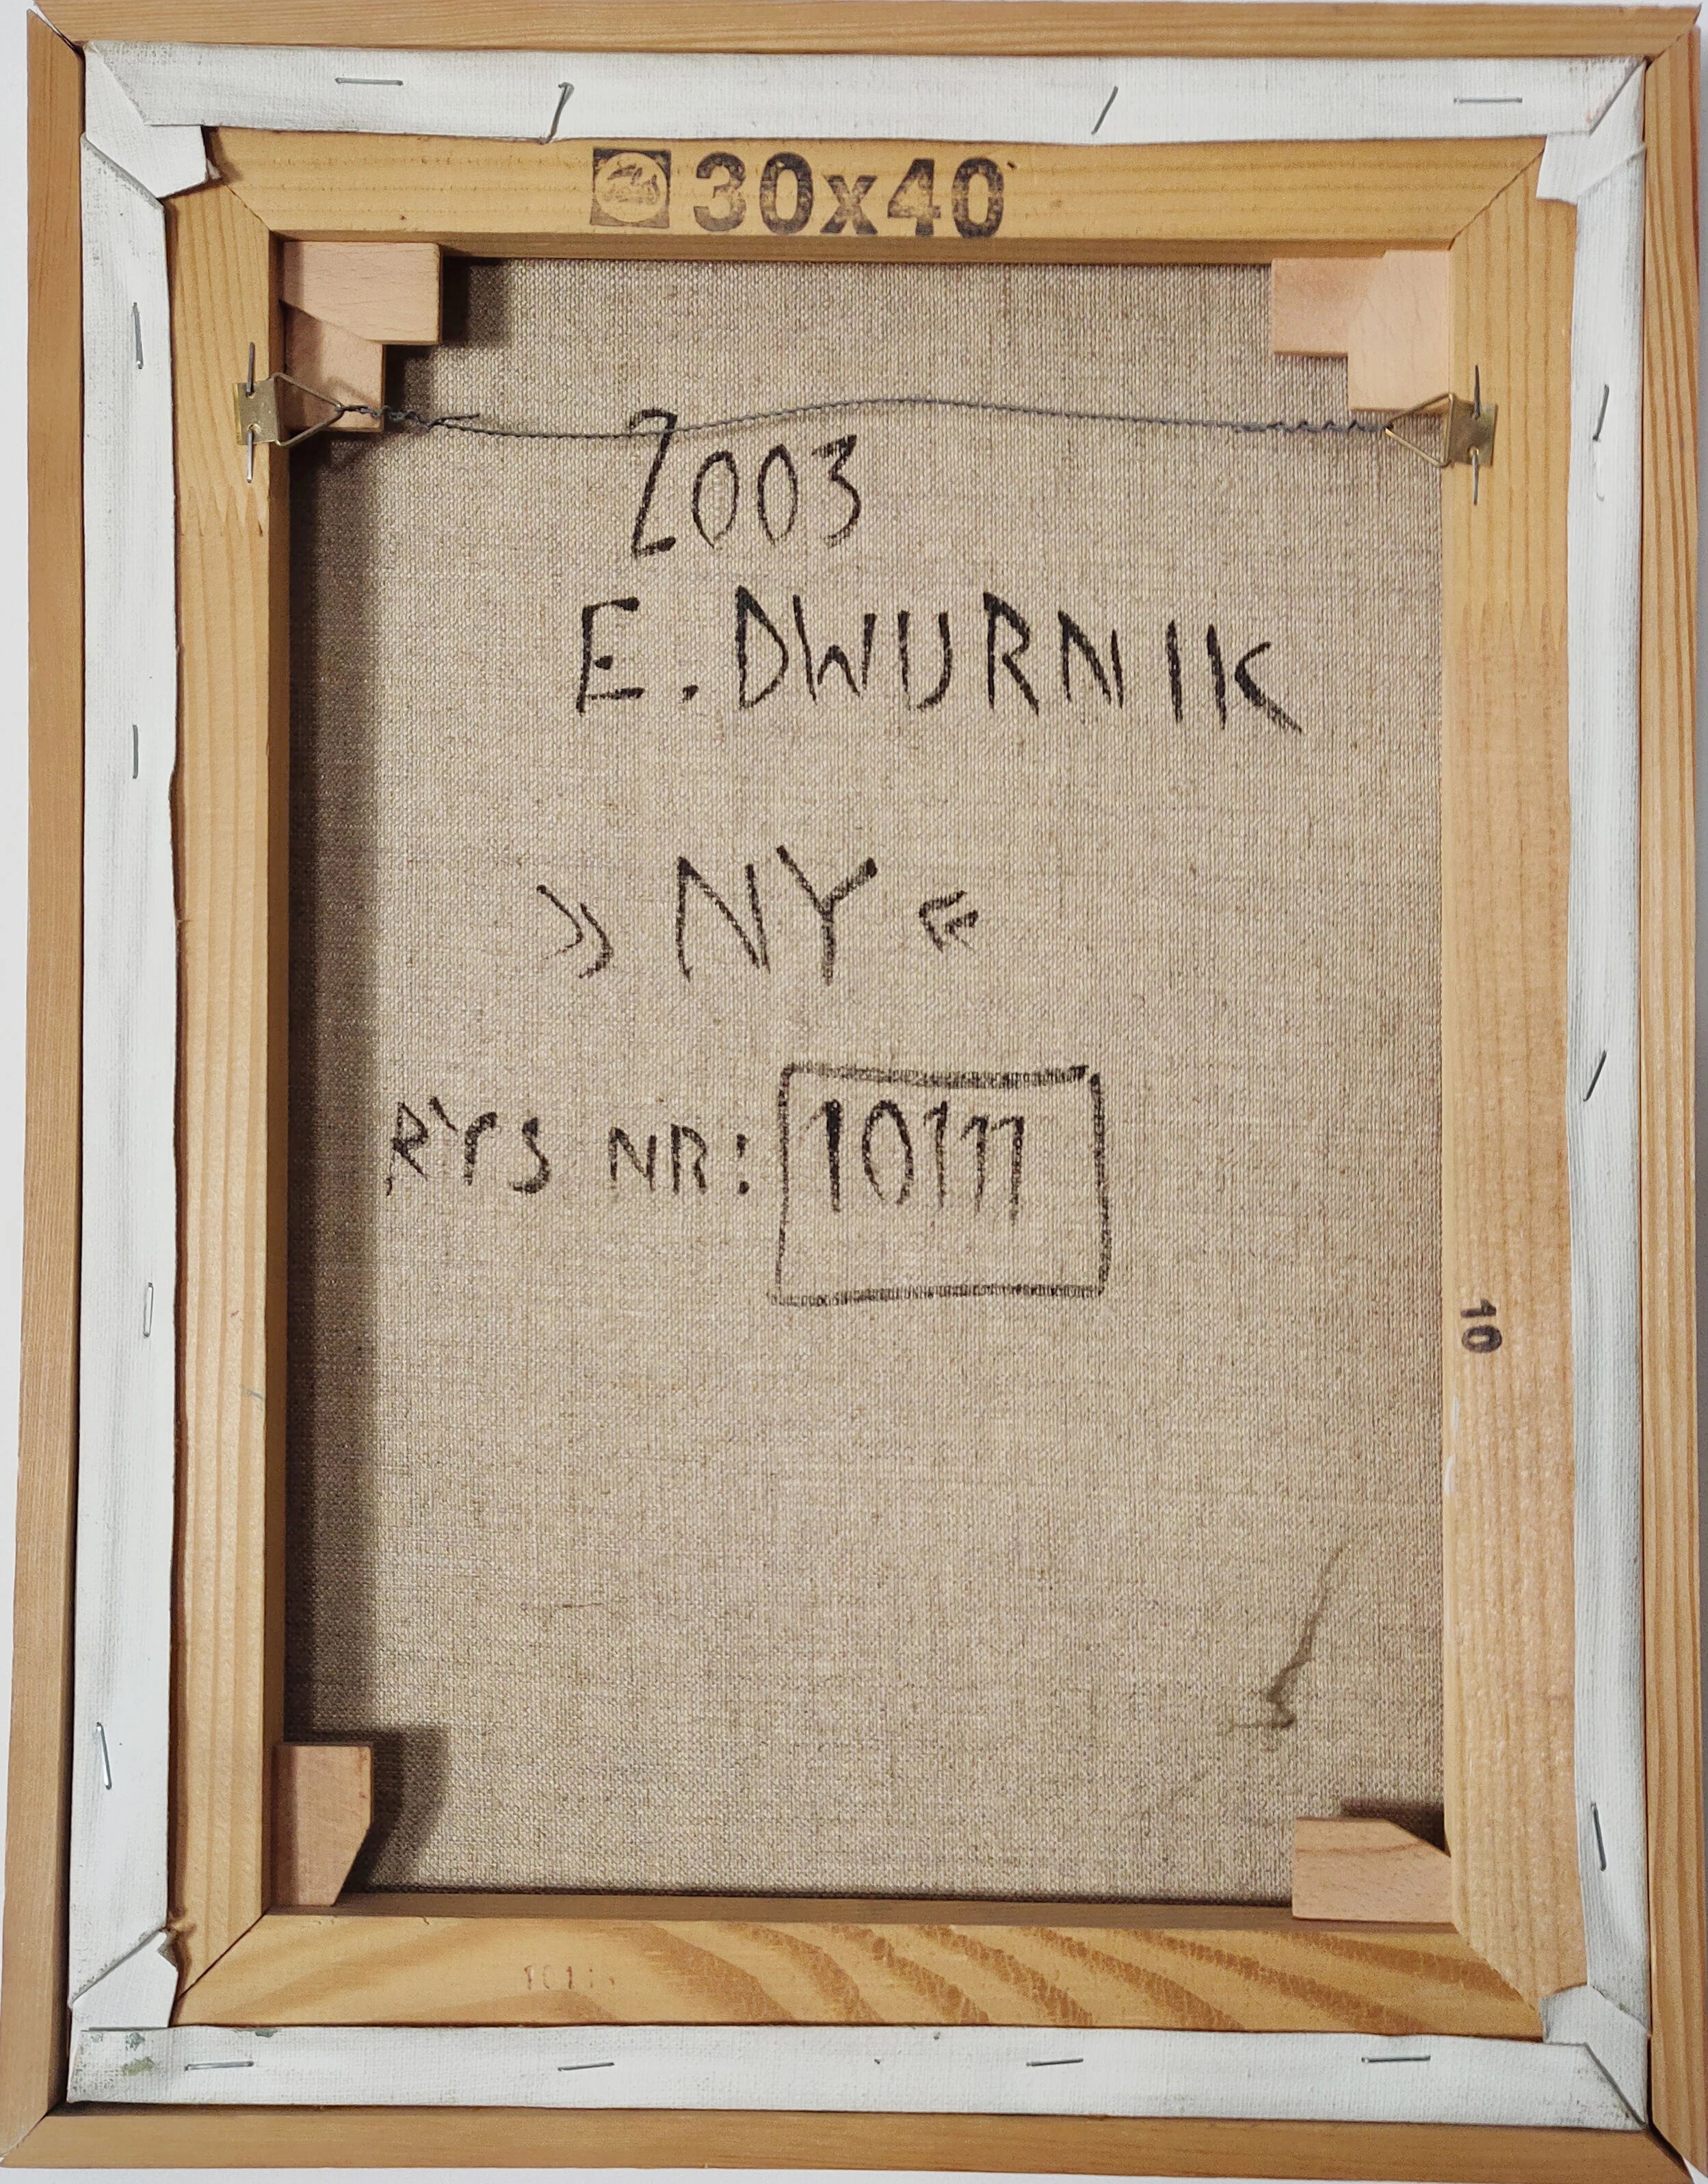 30x40
2003
E. DWURNIK
» NY «
RYS NR: 10111
10